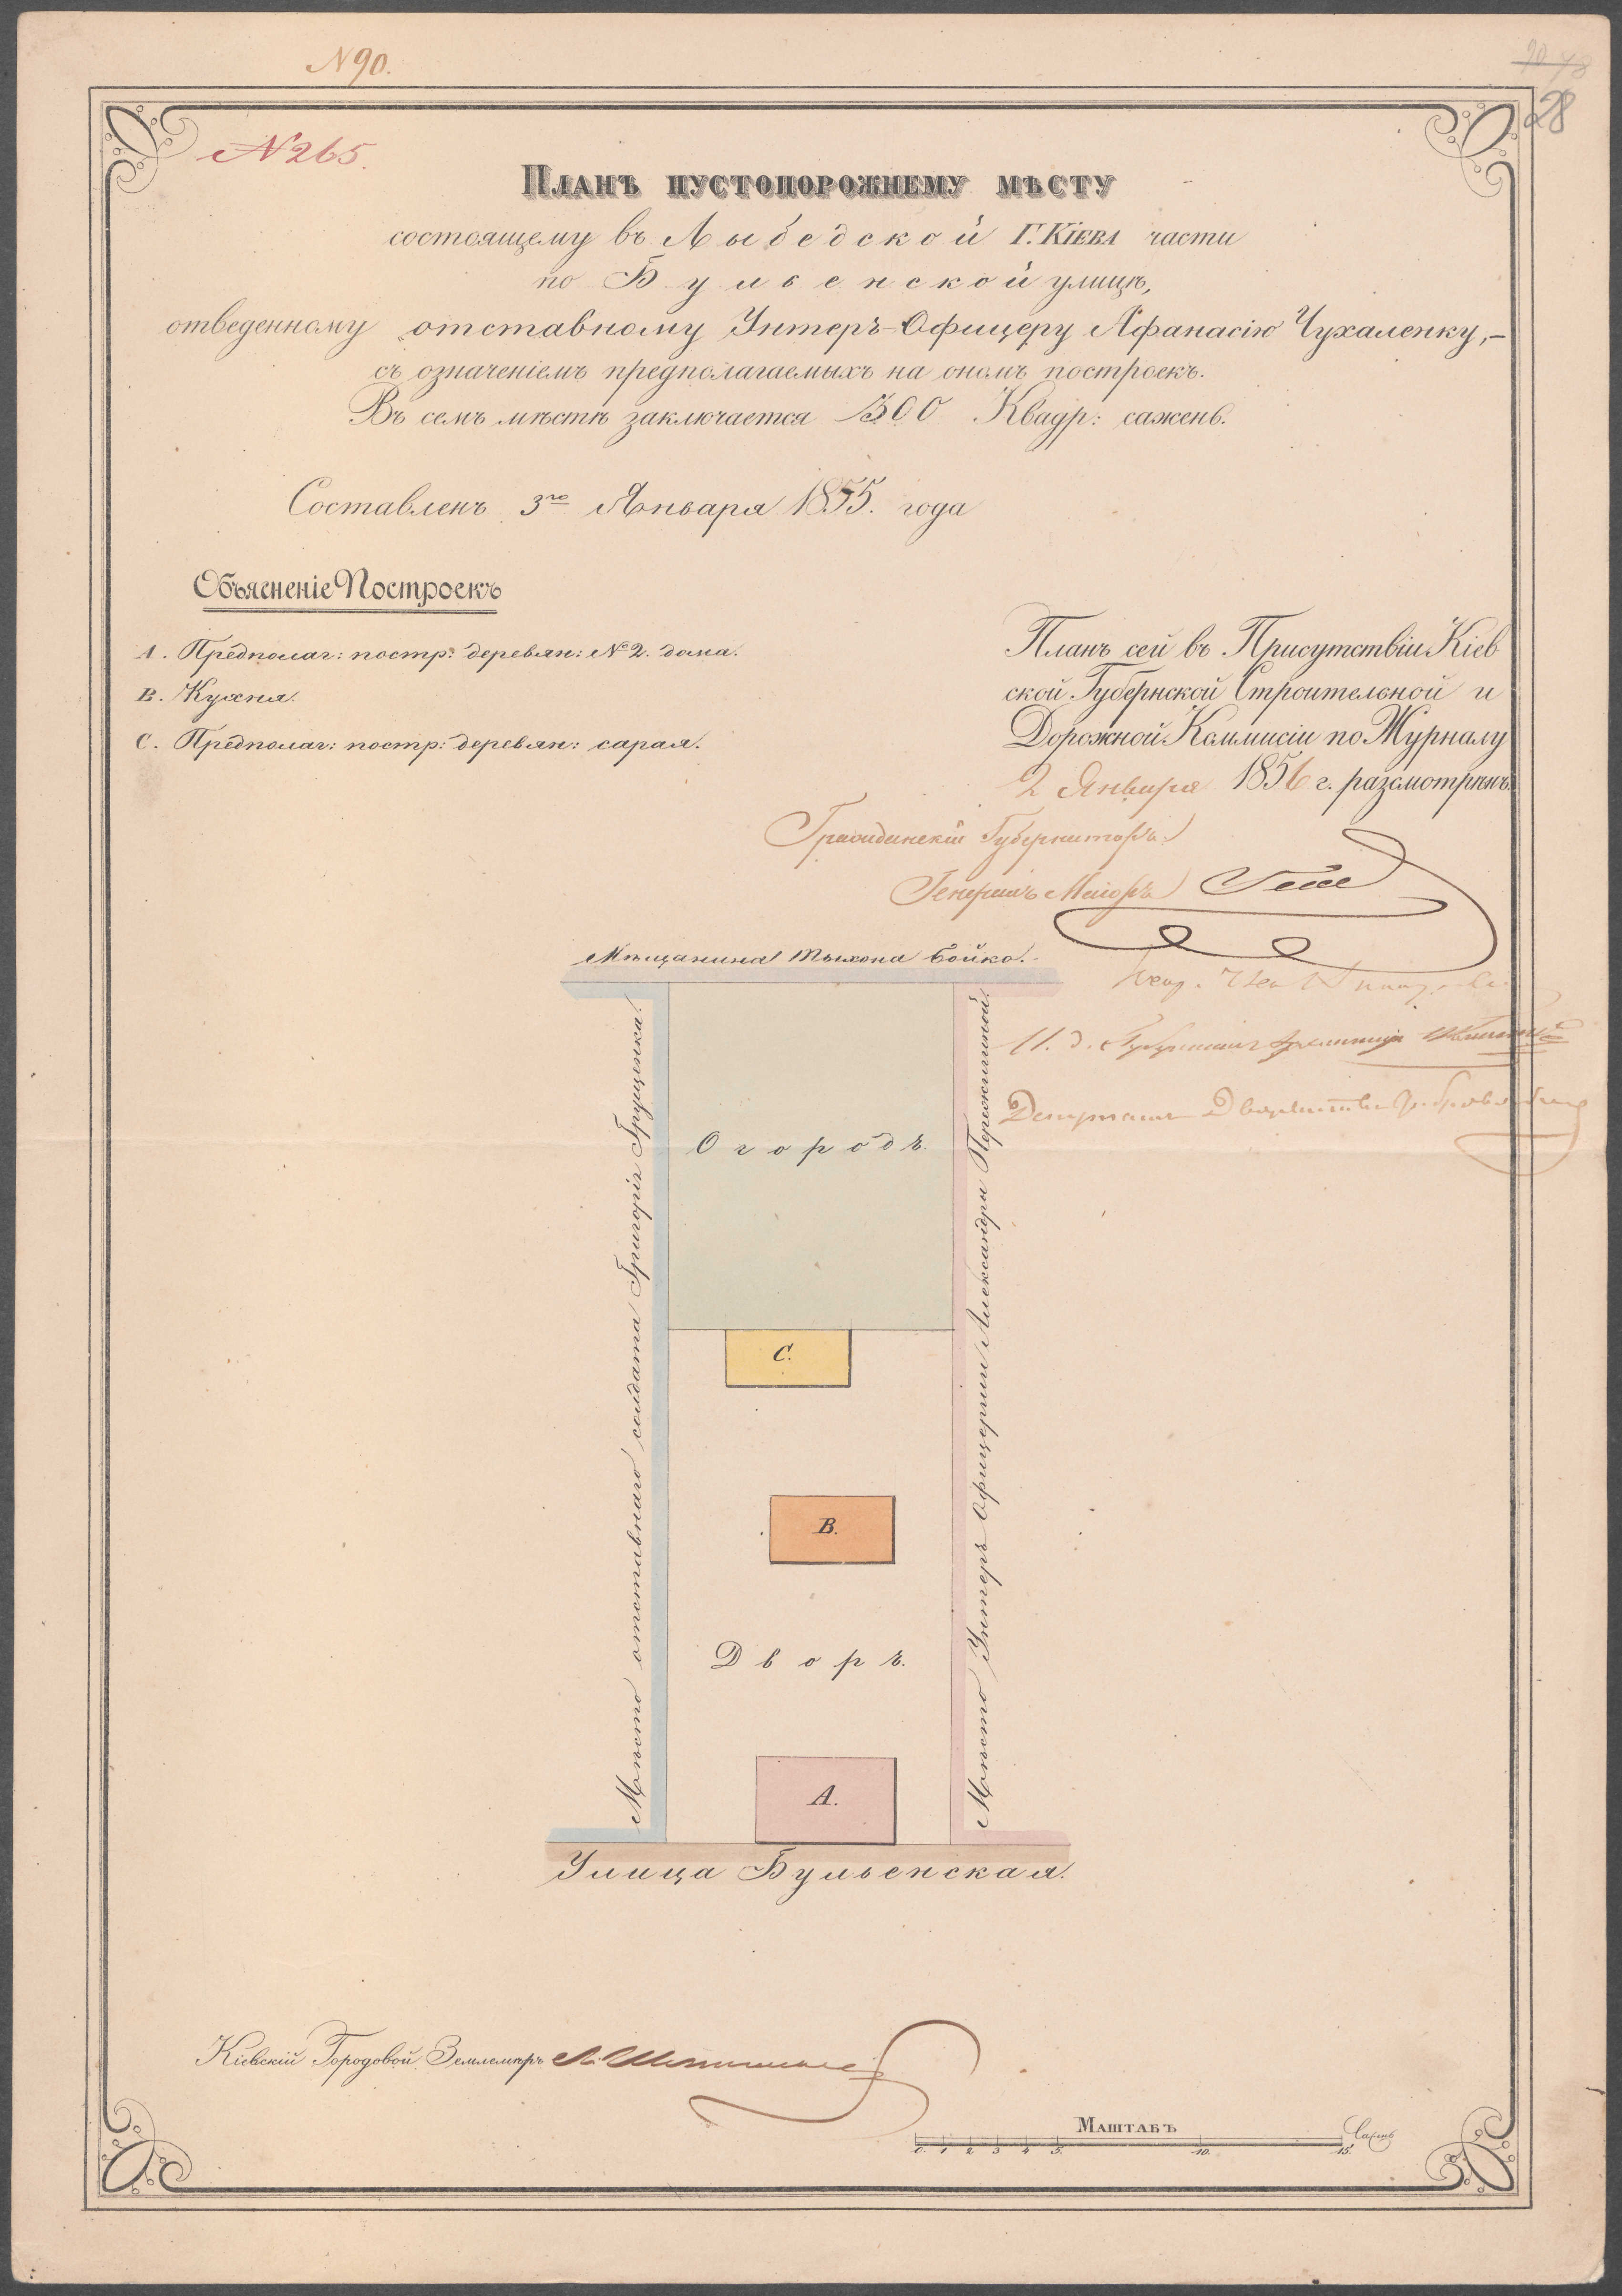 N 90.
28
N 265.
Планъ пустопорожнему мѣсту
состоящему въ Лыбедской Г. Кіева части
по Бульенской улицѣ,
отведенному отставному Унтеръ-Офицеру Афанасію Чухаленку,-
съ означеніемъ предполагаемыхъ на ономъ построекъ.
Въ семъ мѣстѣ заключается 300 Квадр: сажень.
Составленъ 3го Января 1855. года
Объясненіе Построекъ
A. Предполаг: постр: деревян: №2. дома.
B. Кухня.
C. Предполаг: постр: деревян: сарая.
Планъ сей въ Присутствіи Кіев
ской Губернской Строительной и
Дорожной Коммисіи по Журналу
2 Января 1856 г. разсмотрѣнъ.
Гражданскій Губернаторъ
Генералъ Маіоръ
Мѣщанина Тыхона Бойко.
Мѣсто отставнаго солдата Григорія Грущенка.
Мѣсто Унтеръ Офицерши Александры
И. д.
Депутатъ Дворянства
Огородъ.
C.
B.
Дворъ.
A.
Улица Бульенская.
Кіевскій Городовой Землемѣръ
Маштабъ
Сажень
0. 1 2 3 4 5. 10. 15.